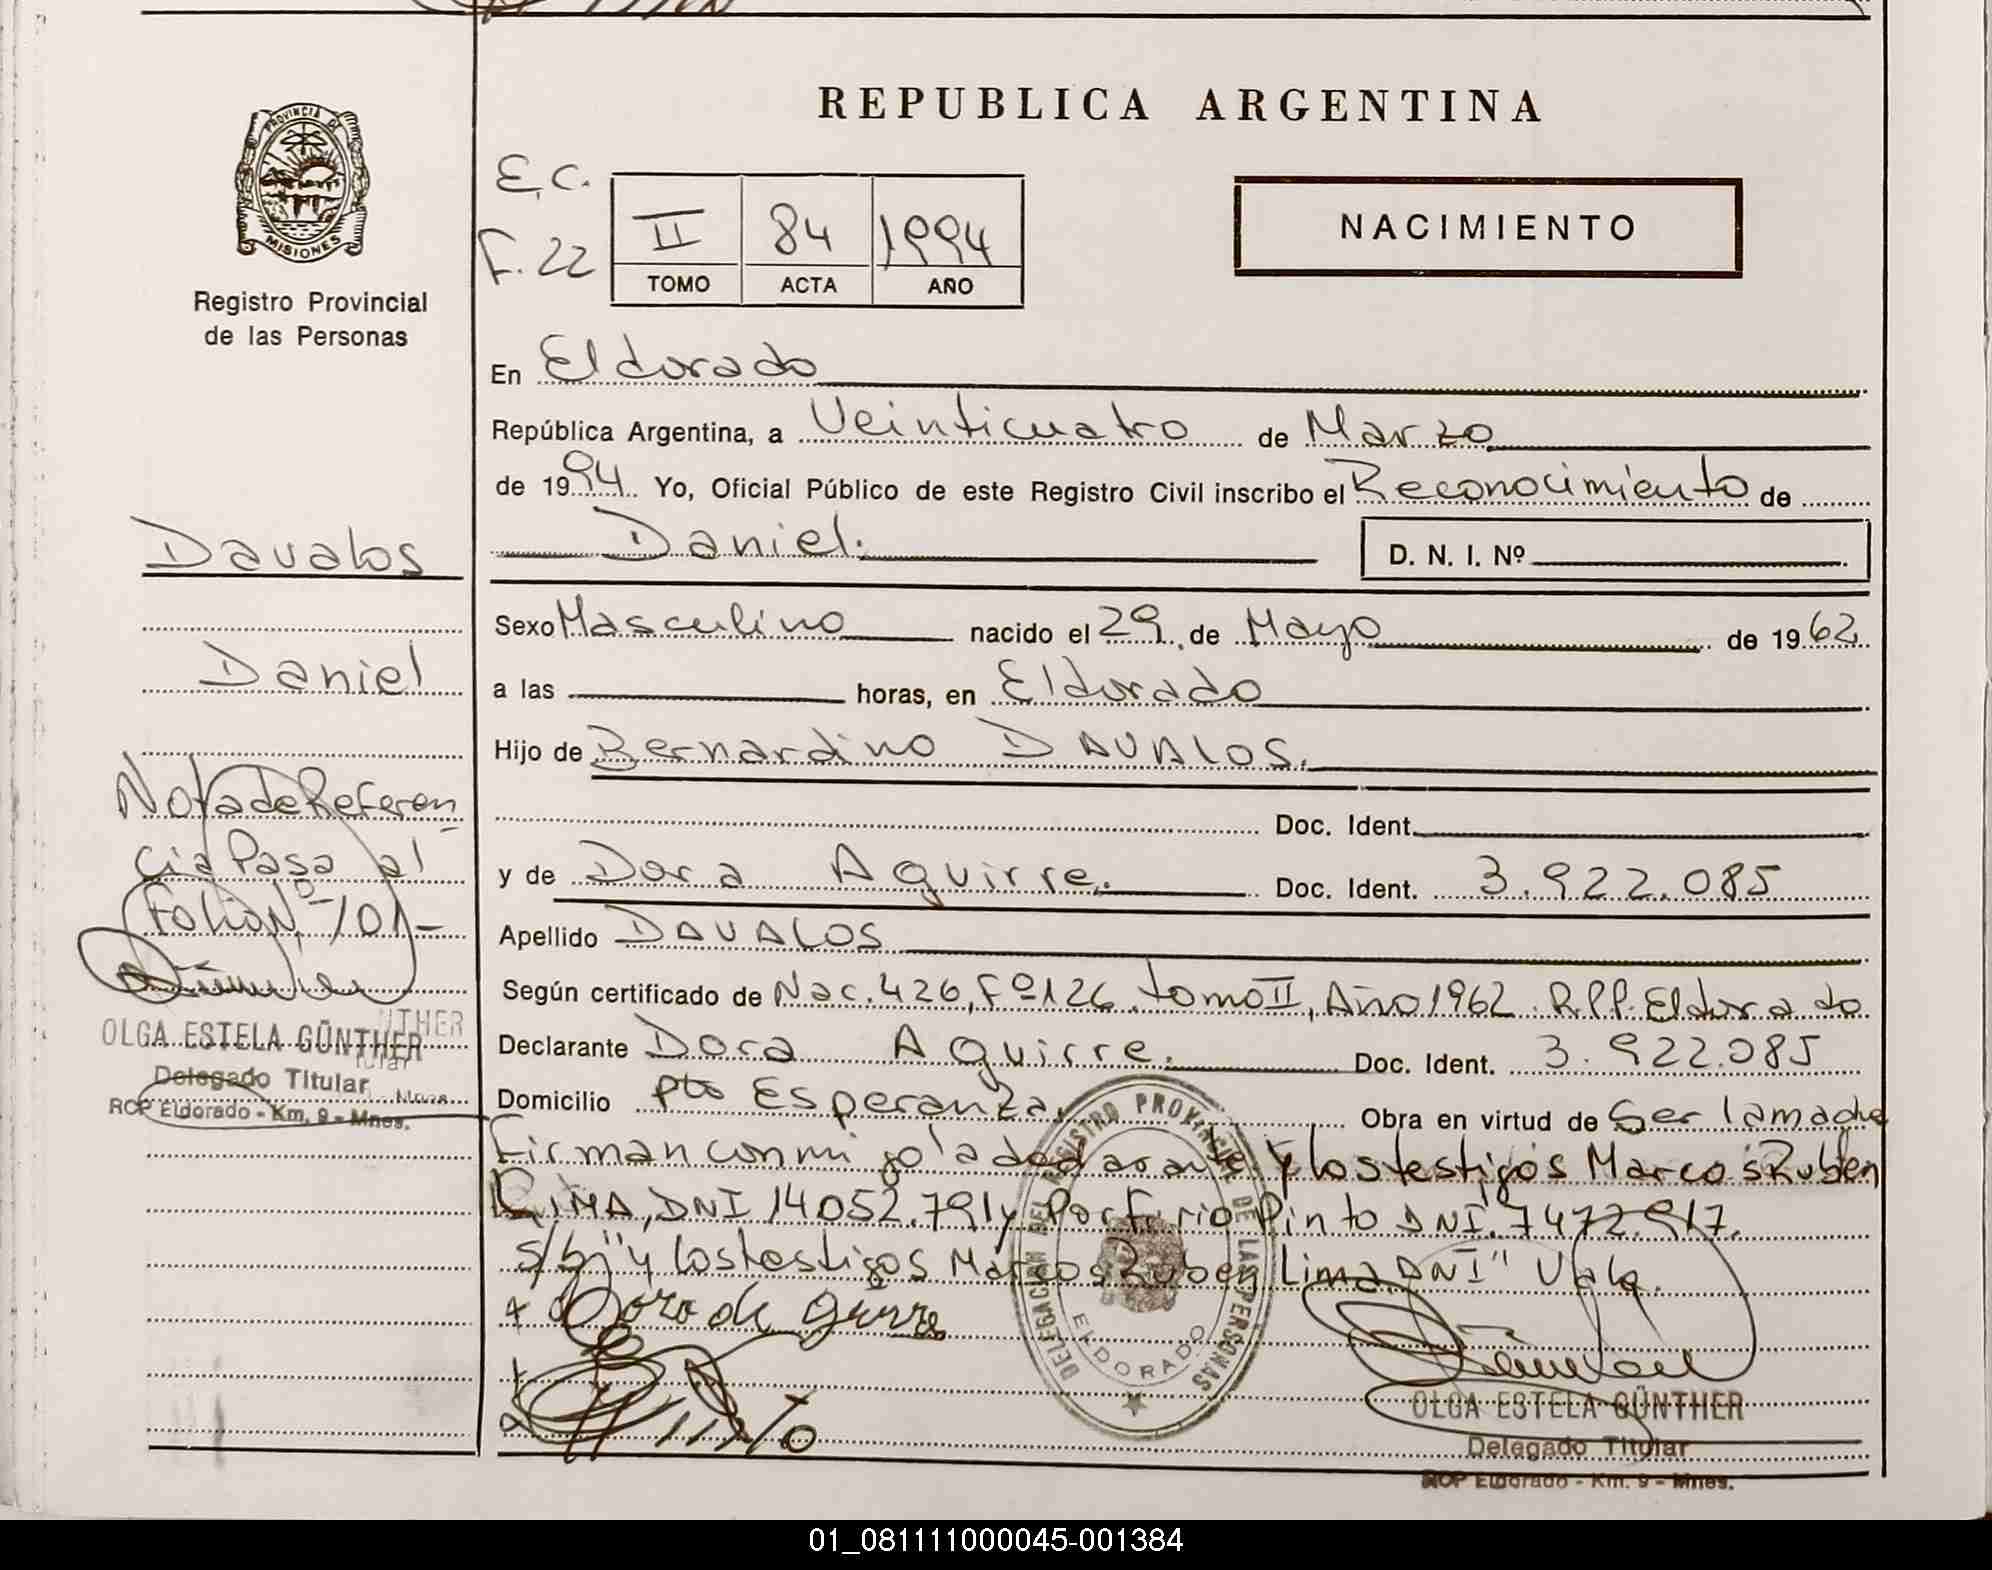 REPUBLICA ARGENTINA
PROVINCIA DE
MISIONES
Registro Provincial
de las Personas
E.C.
F. 22
II 84 1994
TOMO ACTA AÑO
NACIMIENTO
En Eldorado
República Argentina, a Veinticuatro de Marzo
de 1994. Yo, Oficial Público de este Registro Civil inscribo el Reconocimiento de
Daniel.
D. N. I. Nº
Sexo Masculino nacido el 29 de Mayo de 1962
a las horas, en Eldorado
Hijo de Bernardino DAVALOS.
Doc. Ident.
y de Dora Aguirre. Doc. Ident. 3.922.085
Apellido DAVALOS
Según certificado de Nac. 426, Fº 126, tomo II, Año 1962 R.P.P. Eldorado
Declarante Dora Aguirre. Doc. Ident. 3.922.085
Domicilio Pto Esperanza, Obra en virtud de Ser la madre
Firman conmigo la declarante y los testigos Marcos Ruben
LIMA, DNI 14052.791 y Porfirio Pinto DNI. 7472.917.
s/bj "y los testigos Marcos Ruben Lima DNI" Vale.
Davalos
Daniel
Nota de Referen
cia Pasa al
Folio Nº 101-
OLGA ESTELA GÜNTHER
Delegado Titular
RCP Eldorado - Km. 9 - Mnes.
Dora de
DELEGACION DEL REGISTRO PROVINCIAL DE LAS PERSONAS
ELDORADO
OLGA ESTELA GÜNTHER
Delegado Titular
RCP Eldorado - Km. 9 - Mnes.
01_081111000045-001384